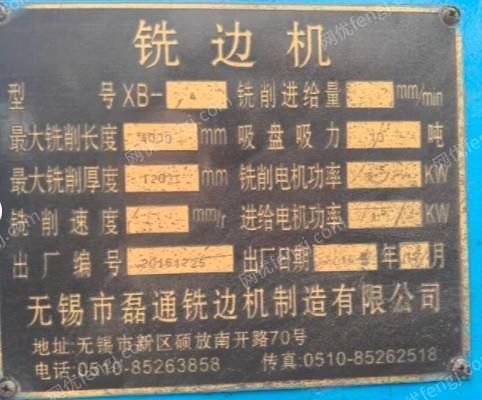 铣边机
型号 XB-4 铣削进给量 mm/min
最大铣削长度 4000 mm 吸盘吸力 30 吨
最大铣削厚度 mm 铣削电机功率 KW
铣削速度 mm/r 进给电机功率 KW
出厂编号 20161225 出厂日期 2016 年 月
无锡市磊通铣边机制造有限公司
地址:无锡市新区硕放南开路70号
电话:0510-85263858 传真:0510-85262518